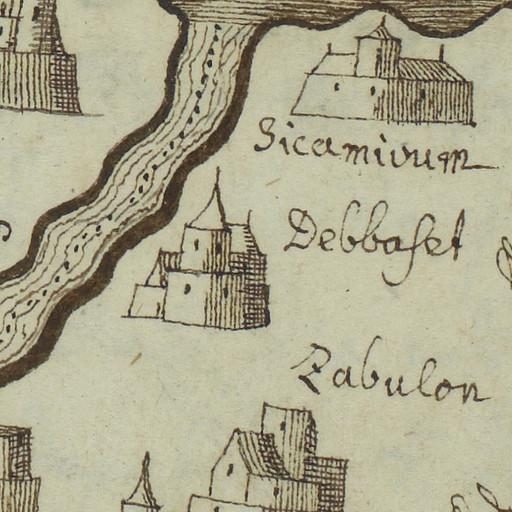 Sicaminum
Debbaset
Zabulon